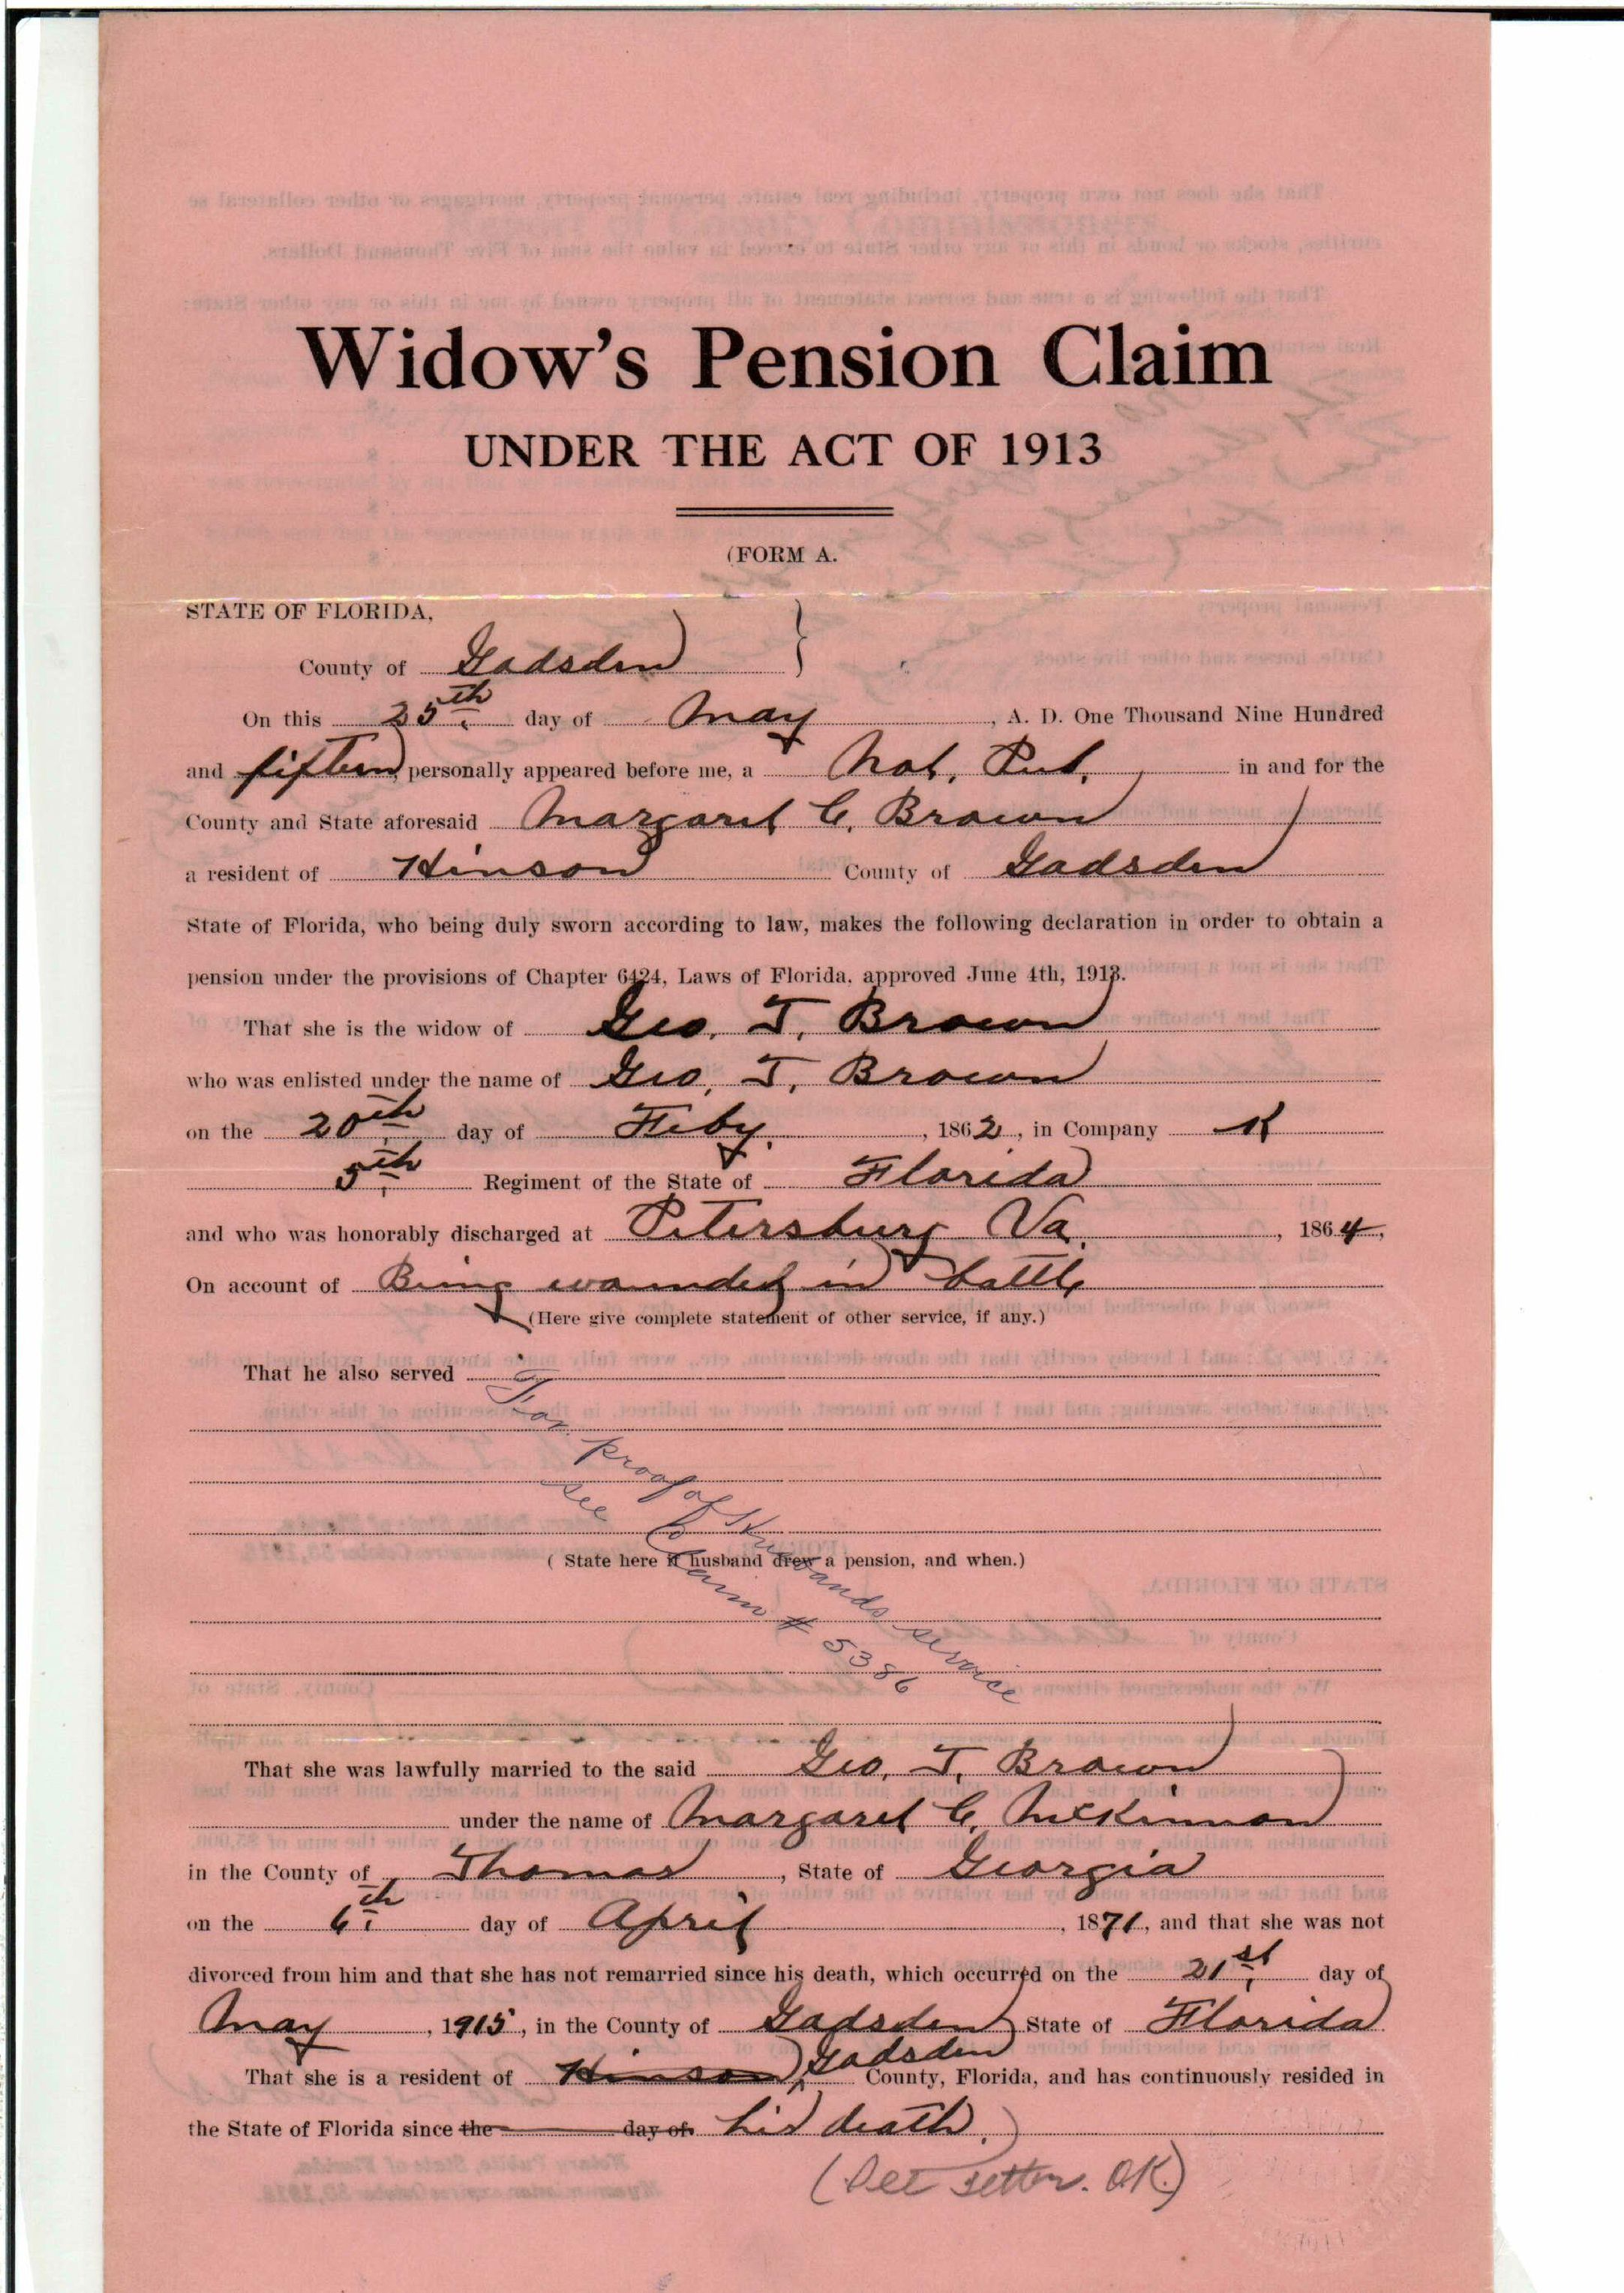 Widow's Pension Claim
UNDER THE ACT OF 1913
(FORM A.
STATE OF FLORIDA,
County of Gadsden
On this 25th day of May, A. D. One Thousand Nine Hundred
and fifteen personally appeared before me, a Not. Pub. in and for the
County and State aforesaid Margaret C. Brown
a resident of Hinson County of Gadsden
State of Florida, who being duly sworn according to law, makes the following declaration in order to obtain a
pension under the provisions of Chapter 6424, Laws of Florida, approved June 4th, 1913.
That she is the widow of Geo. T. Brown
who was enlisted under the name of Geo. T. Brown
on the 20th day of Feby., 1862, in Company K
5th Regiment of the State of Florida
and who was honorably discharged at Petersburg Va., 1864,
On account of Being wounded in battle
(Here give complete statement of other service, if any.)
That he also served
For proof of Husbands service
see Claim # 5386
(State here if husband drew a pension, and when.)
That she was lawfully married to the said Geo. T. Brown
under the name of Margaret C. McKinnon
in the County of Thomas, State of Georgia
on the 6th day of April, 1871, and that she was not
divorced from him and that she has not remarried since his death, which occurred on the 21st day of
May, 1915, in the County of Gadsden State of Florida
That she is a resident of Hinson Gadsden County, Florida, and has continuously resided in
the State of Florida since the day of his death.
(See letter. OK.)